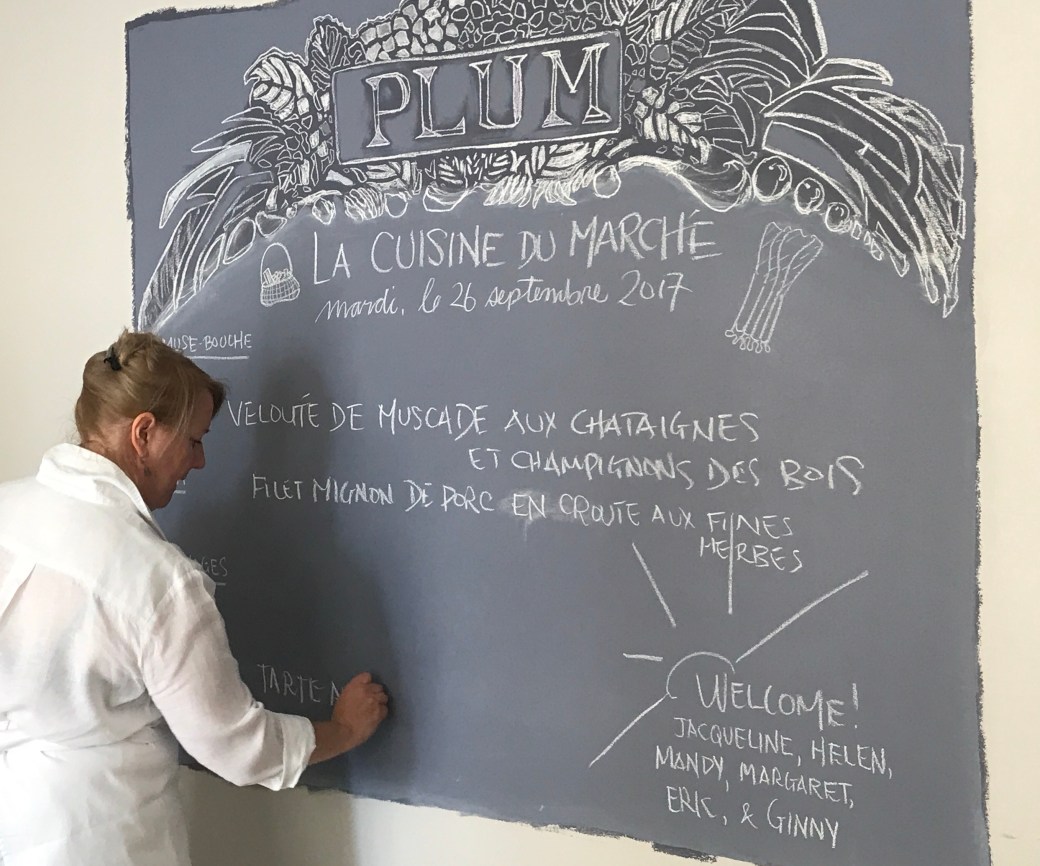 PLUM
LA CUISINE DU MARCHÉ
mardi, le 26 septembre 2017
MUSE-BOUCHE
VELOUTÉ DE MUSCADE AUX CHATAIGNES
ET CHAMPIGNONS DES BOIS
FILET MIGNON DE PORC EN CROUTE AUX FINES
HERBES
GES
TARTE A
WELCOME!
JACQUELINE, HELEN,
MANDY, MARGARET,
ERIC, & GINNY